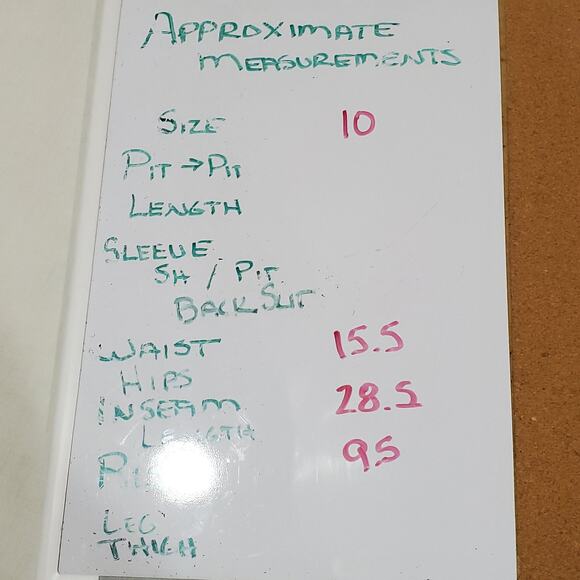 APPROXIMATE
MEASUREMENTS
SIZE 10
PIT → PIT
LENGTH
SLEEVE
SH / PIT
BACK SLIT
WAIST 15.5
HIPS
INSEAM 28.5
LENGTH
95
LEG
THIGH